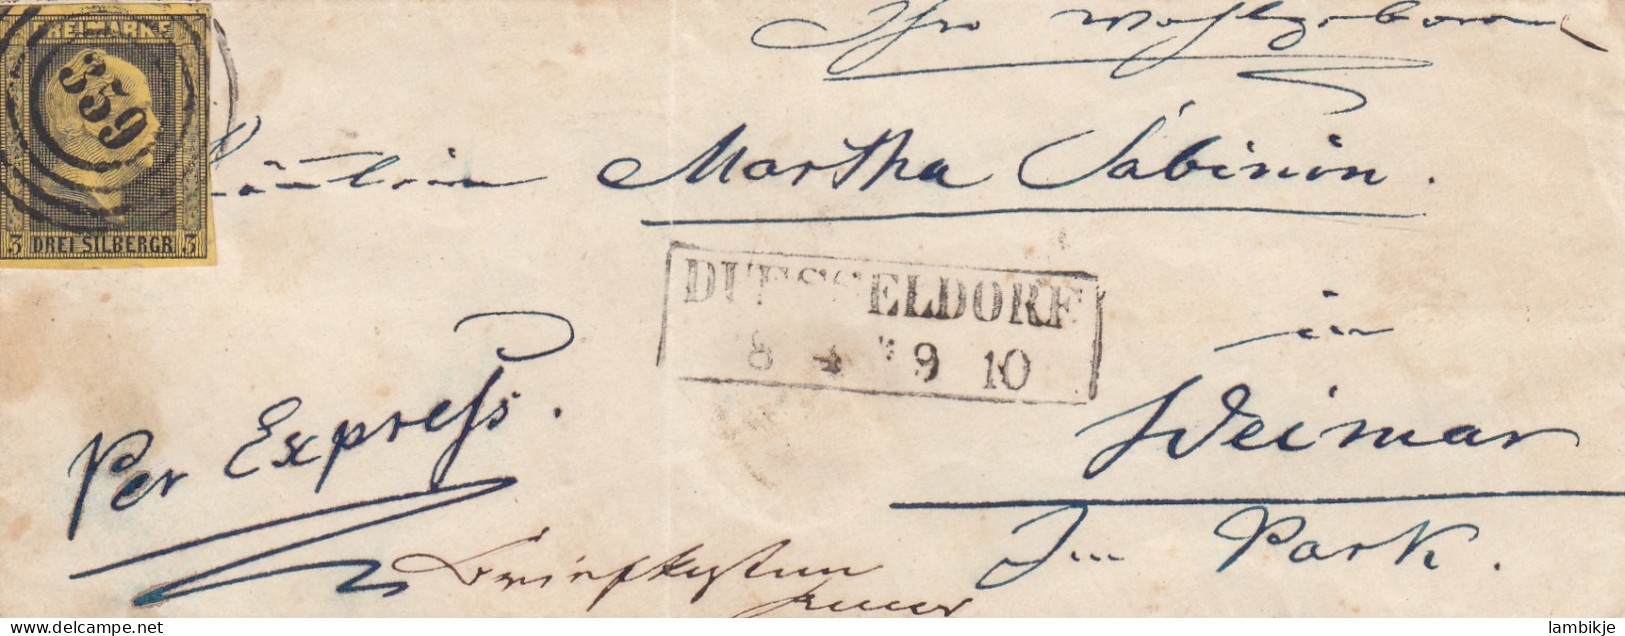 FREIMARKE
359
3 DREI SILBERGR. 3
Ihro Wohlgeboren
Fräulein Martha Sabinin.
DUESSELDORF
8 4 9 10
in
Weimar
Per Express.
Im Park.
delcampe.net
lambikje